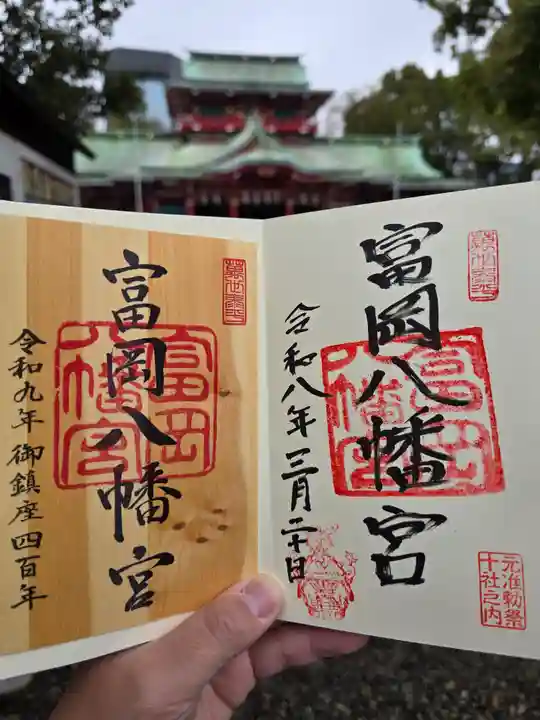 富岡八幡宮
令和八年三月二十日
富岡八幡宮
元准勅祭
十社之内
富岡八幡宮
令和九年御鎮座四百年
富岡
八幡宮